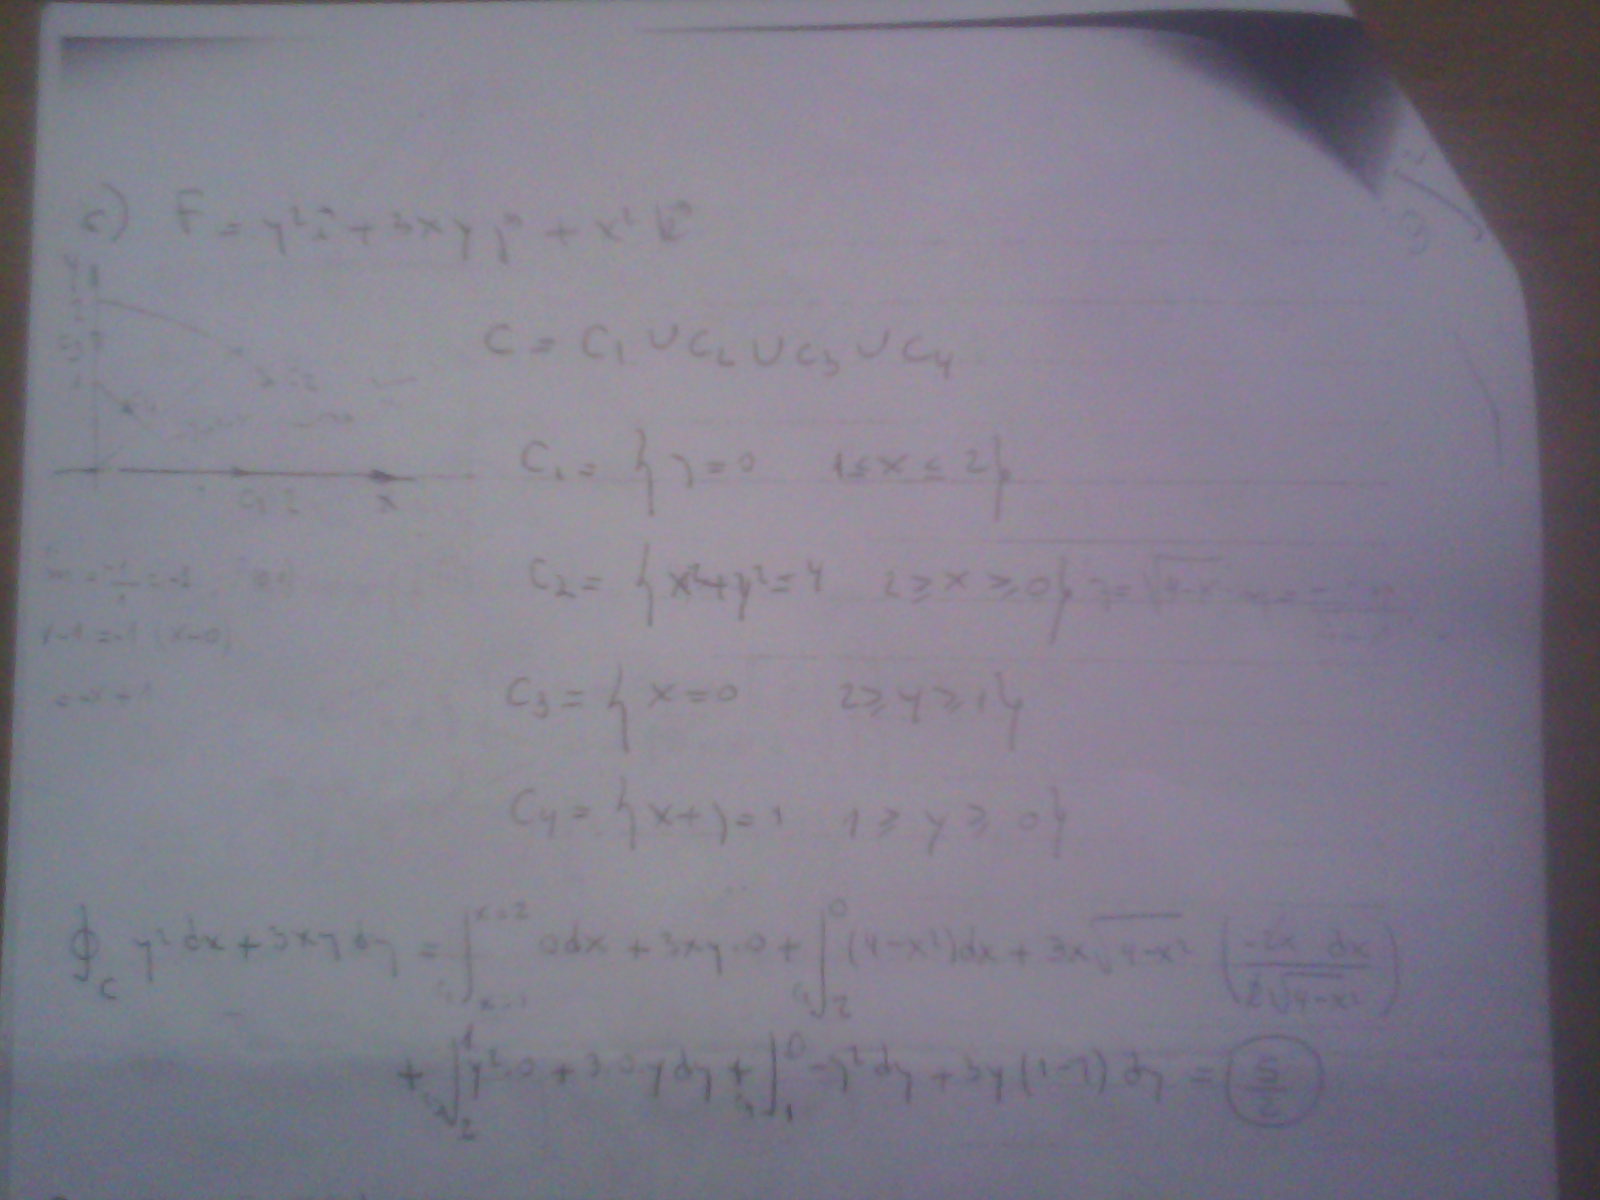 c) F = y² i + 3xy j + x² k
C = C₁ ∪ C₂ ∪ C₃ ∪ C₄
C₁ = { y = 0 1 ≤ x ≤ 2 }
C₂ = { x² + y² = 4 2 ≥ x ≥ 0 }
C₃ = { x = 0 2 ≥ y ≥ 1 }
C₄ = { x + y = 1 1 ≥ y ≥ 0 }
∮_C y² dx + 3xy dy = ∫_{x=1}^{x=2} 0dx + 3xy·0 + ∫_2^0 (4-x²)dx + 3x√(4-x²) (-2x dx / 2√(4-x²))
+ ∫_2^1 y²·0 + 3·0y dy + ∫_1^0 -y² dy + 3y(1-y) dy = 5/2